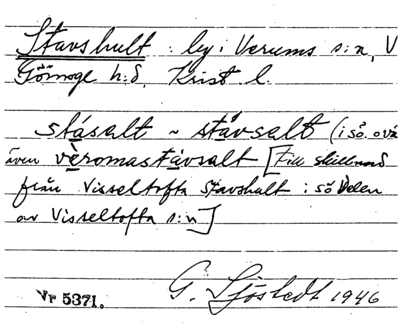 Stavshult : by i Verums s:n, V
Göinge h:d, Krist. l.
stásalt ~ stávsalt (i sö. o. vä
även vèromastávsalt [till skillnad
från Visseltofta Stavshult i sö delen
av Visseltofta s:n]
Vr 5371.
G. Sjöstedt 1946